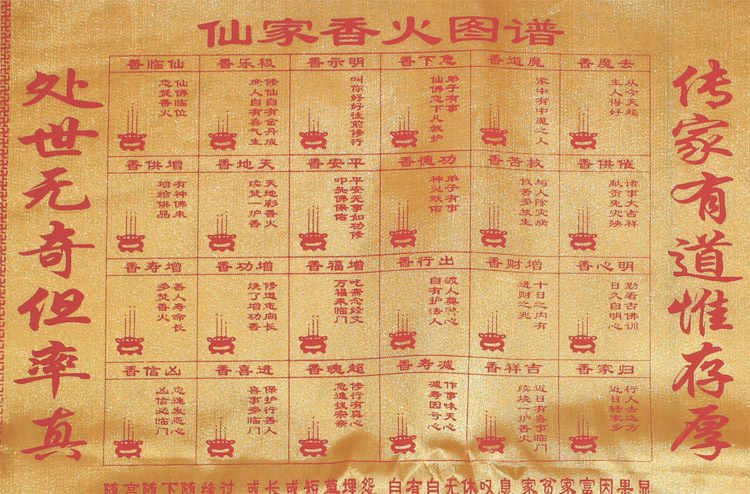 仙家香火图谱
传家有道惟存厚
处世无奇但率真
去魔香
从今天起
主人得好
魔道香
家中有中魔之人
急下香
弟子有事
仙佛急下凡救护
明示香
叫你好好往前修行
极乐香
修仙自有金丹成
庆人自有喜气生
仙临香
仙佛临位
急焚香火
催供香
诸事大吉祥
献贡免灾殃
救苦香
与人除灾病
饮善多放生
功德香
弟子有事
神灵默佑
平安香
平安无事如功修
叩头佛保佑
天地香
天地彩香火
续焚一炉香
增供香
有神佛来
增给供品
明心香
勤看古佛训
日久自明心
增财香
十日之内有
进财之兆
出行香
渡人尊
自有护法人
增福香
吃斋念经文
万福来临门
增功香
修道志向长
烧了增功香
增寿香
善人寿命长
多焚香火
归家香
行人去远方
近日转家乡
吉祥香
近日有喜事临门
续烧一炉香
减寿香
作事昧天心
减寿因亏心
超魂香
修行有真心
急速拔宗亲
进喜香
保护行善人
喜事多临门
凶信香
急速发恶心
凶信必临门
随高随下随缘过 或长或短莫埋怨 自有自无休叹息 家贫家富因果